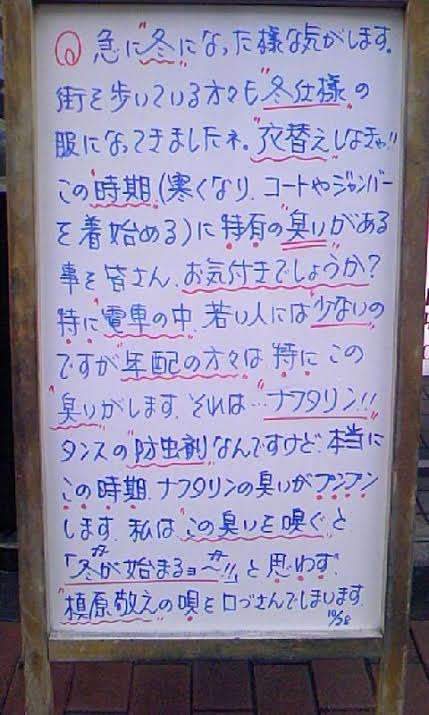 急に"冬"になった様な気がします。
街を歩いている方々も"冬仕様"の
服になってきましたネ。"衣替えしなきゃ!!"
この"時期"(寒くなり、コートやジャンパー
を着始める)に特有の"臭い"がある
事を皆さん、お気付きでしょうか?
特に"電車の中"、若い人には"少ないの
ですが"年配の方々"は特にこの
"臭い"がします。それは…"ナフタリン!!"
タンスの"防虫剤"なんですけど、本当に
この時期、ナフタリンの臭いがプンプン
します。私は"この臭いを嗅ぐ"と
「"冬が始まるョ〜"!!」と思わず、
ガ ガー
"槇原敬之の唄を口づさんでしまいます。
10/28